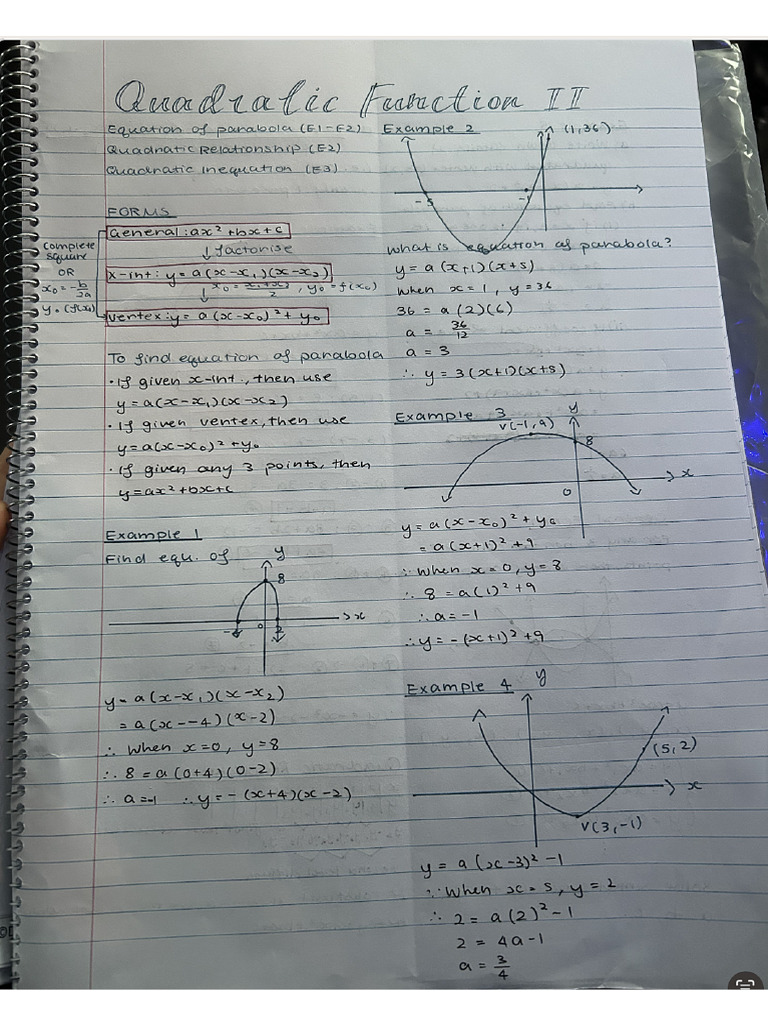 Quadratic Function II
Equation of parabola (E1-E2)
Quadratic Relationship (E2)
Quadratic Inequation (E3)
FORMS
General: ax² + bx + c
↓ factorise
x-int: y = a(x-x₁)(x-x₂)
↓ x₀ = x₁+x₂/2, y₀ = f(x₀)
vertex: y = a(x-x₀)² + y₀
complete
square
OR
x₀ = -b/2a
y₀ (f(x₀)
To find equation of parabola
· If given x-int., then use
y = a(x-x₁)(x-x₂)
· If given vertex, then use
y = a(x-x₀)² + y₀
· If given any 3 points, then
y = ax² + bx + c
Example 1
Find equ. of
y
8
x
-4
0
2
y = a(x-x₁)(x-x₂)
= a(x--4)(x-2)
∴ when x=0, y=8
∴ 8 = a(0+4)(0-2)
∴ a=-1 ∴ y = -(x+4)(x-2)
Example 2
(1,36)
-5
-1
What is equation of parabola?
y = a(x+1)(x+5)
when x=1, y=36
36 = a(2)(6)
a = 36/12
a = 3
∴ y = 3(x+1)(x+5)
Example 3
y
V(-1,9)
8
x
0
y = a(x-x₀)² + y₀
= a(x+1)² + 9
∵ when x=0, y=8
∴ 8 = a(1)² + 9
∴ a = -1
∴ y = -(x+1)² + 9
Example 4
y
(5,2)
x
V(3,-1)
y = a(x-3)² - 1
∵ when x=5, y=2
∴ 2 = a(2)² - 1
2 = 4a - 1
a = 3/4